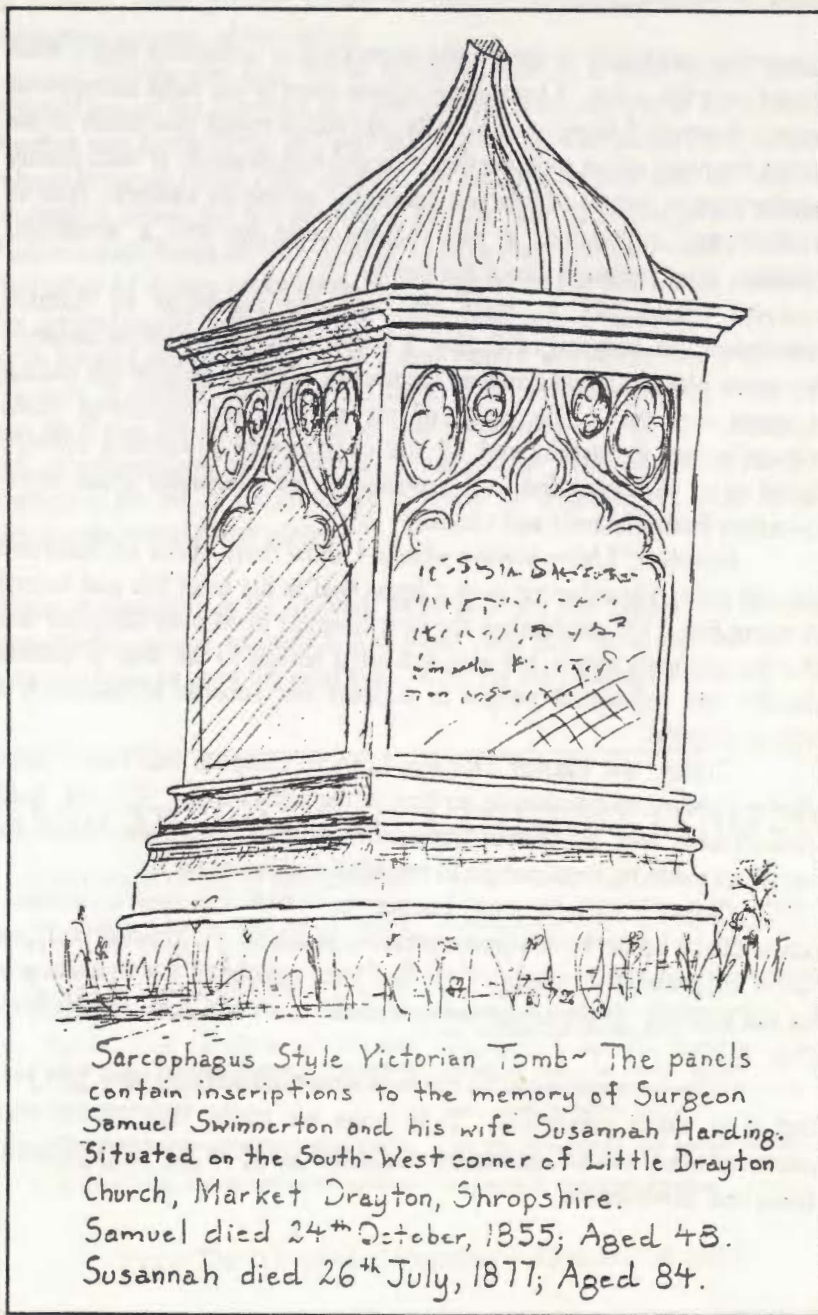 Sarcophagus Style Victorian Tomb~ The panels
contain inscriptions to the memory of Surgeon
Samuel Swinnerton and his wife Susannah Harding.
Situated on the South-West corner of Little Drayton
Church, Market Drayton, Shropshire.
Samuel died 24th October, 1855; Aged 48.
Susannah died 26th July, 1877; Aged 84.